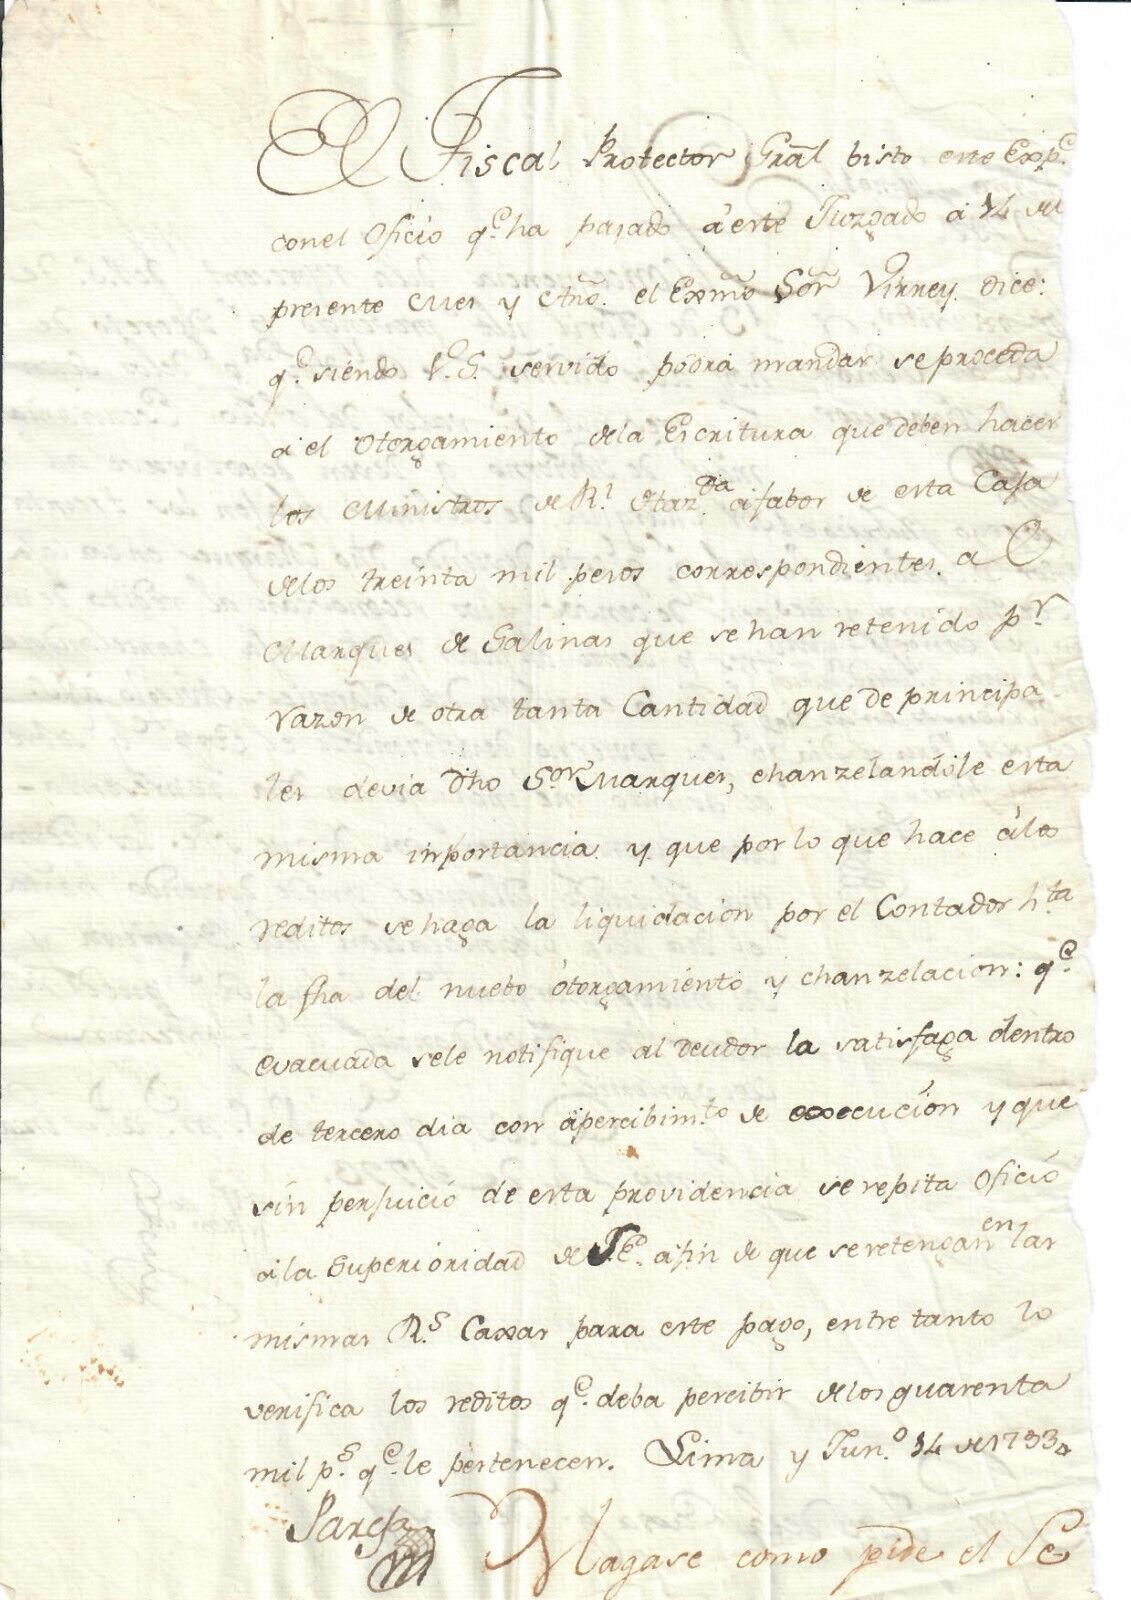 El Fiscal Protector Gral bisto este Expe.
con el Oficio qe. ha pasado á este Juzgado á 14 del
presente Mes y Año. el Exmo Sor Virrey. dice:
qe. siendo V.S. servido podrá mandar se proceda
a el otorgamiento dela Escritura que deben hacer
los Ministros de Rl. Hazda. a fabor de esta Casa
delos treinta mil pesos correspondientes. a El
Marques de Salinas que se han retenido pr.
razon de otra tanta Cantidad que de principa
les devia Dho Sor Marques, chanzelandole esta
misma inportancia. y que por lo que hace á los
reditos se haga la liquidacion por el Contador hta
la fha del nuebo otorgamiento y chanzelacion: qe.
evacuada sele notifique al deudor la satisfaga dentro
de tercero dia con apercibimto. de execución y que
sin perjuicio de esta providencia se repita Oficio
a la Superioridad de S.E. afin de que se retengan en las
mismas Rs. Caxas para este pago, entre tanto lo
verifica los reditos qe. deba percibir delos quarenta
mil ps. qe. le pertenecen. Lima y Jun.o 14 de 1793
Pareja
Hagase como pide el Se